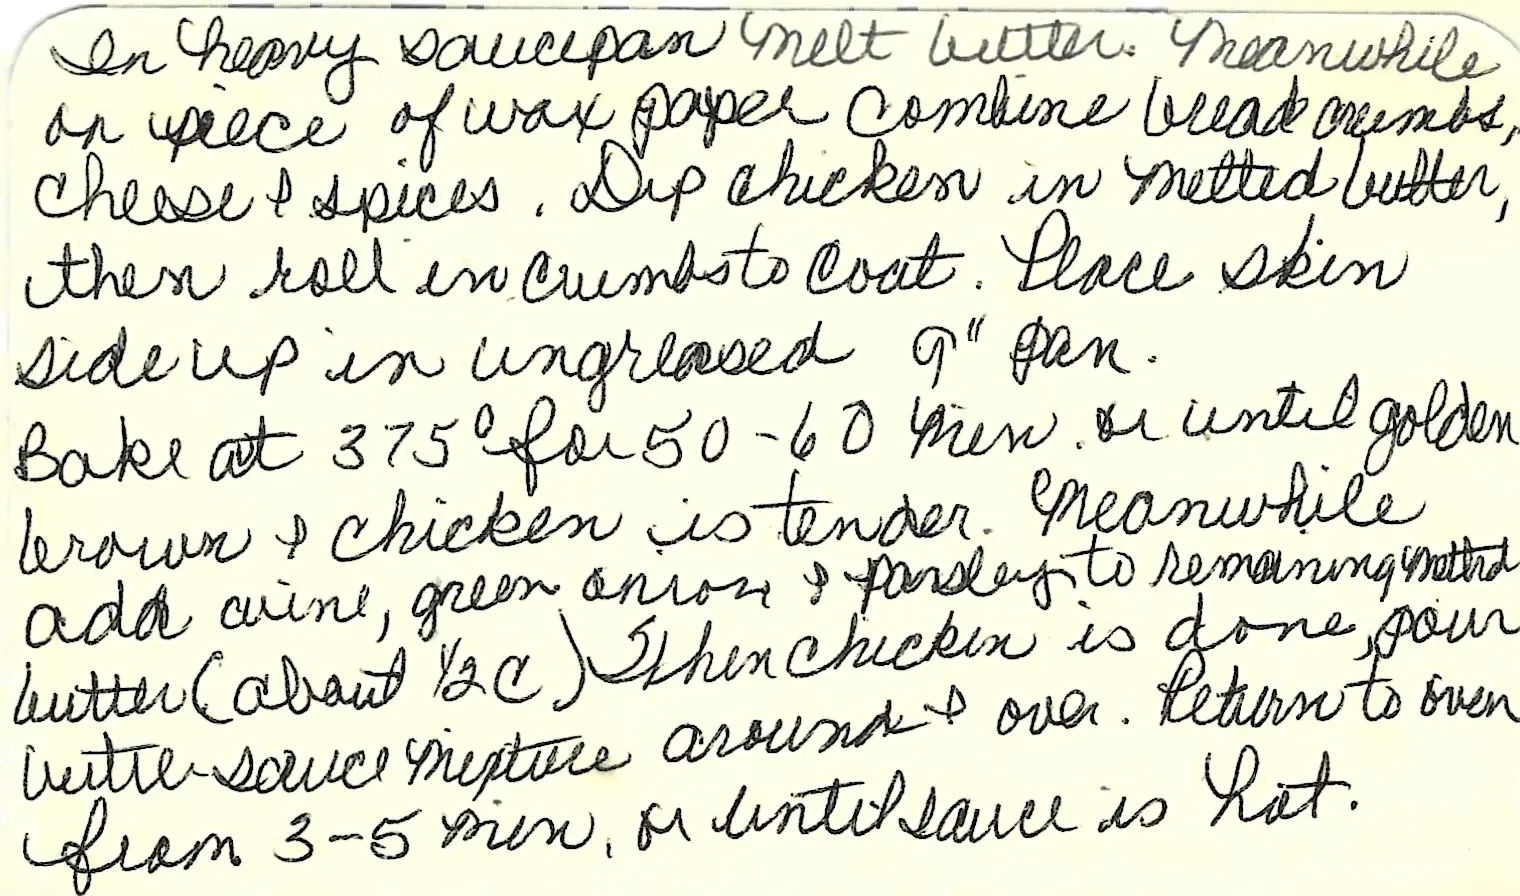 In heavy saucepan melt butter. Meanwhile
on piece of wax paper combine bread crumbs,
cheese & spices. Dip chicken in melted butter,
then roll in crumbs to coat. Place skin
side up in ungreased 9" pan.
Bake at 375° for 50-60 min. or until golden
brown & chicken is tender. Meanwhile
add wine, green onion & parsley to remaining melted
butter (about 1/2 C) When chicken is done, pour
butter sauce mixture around & over. Return to oven
from 3-5 min, or until sauce is hot.